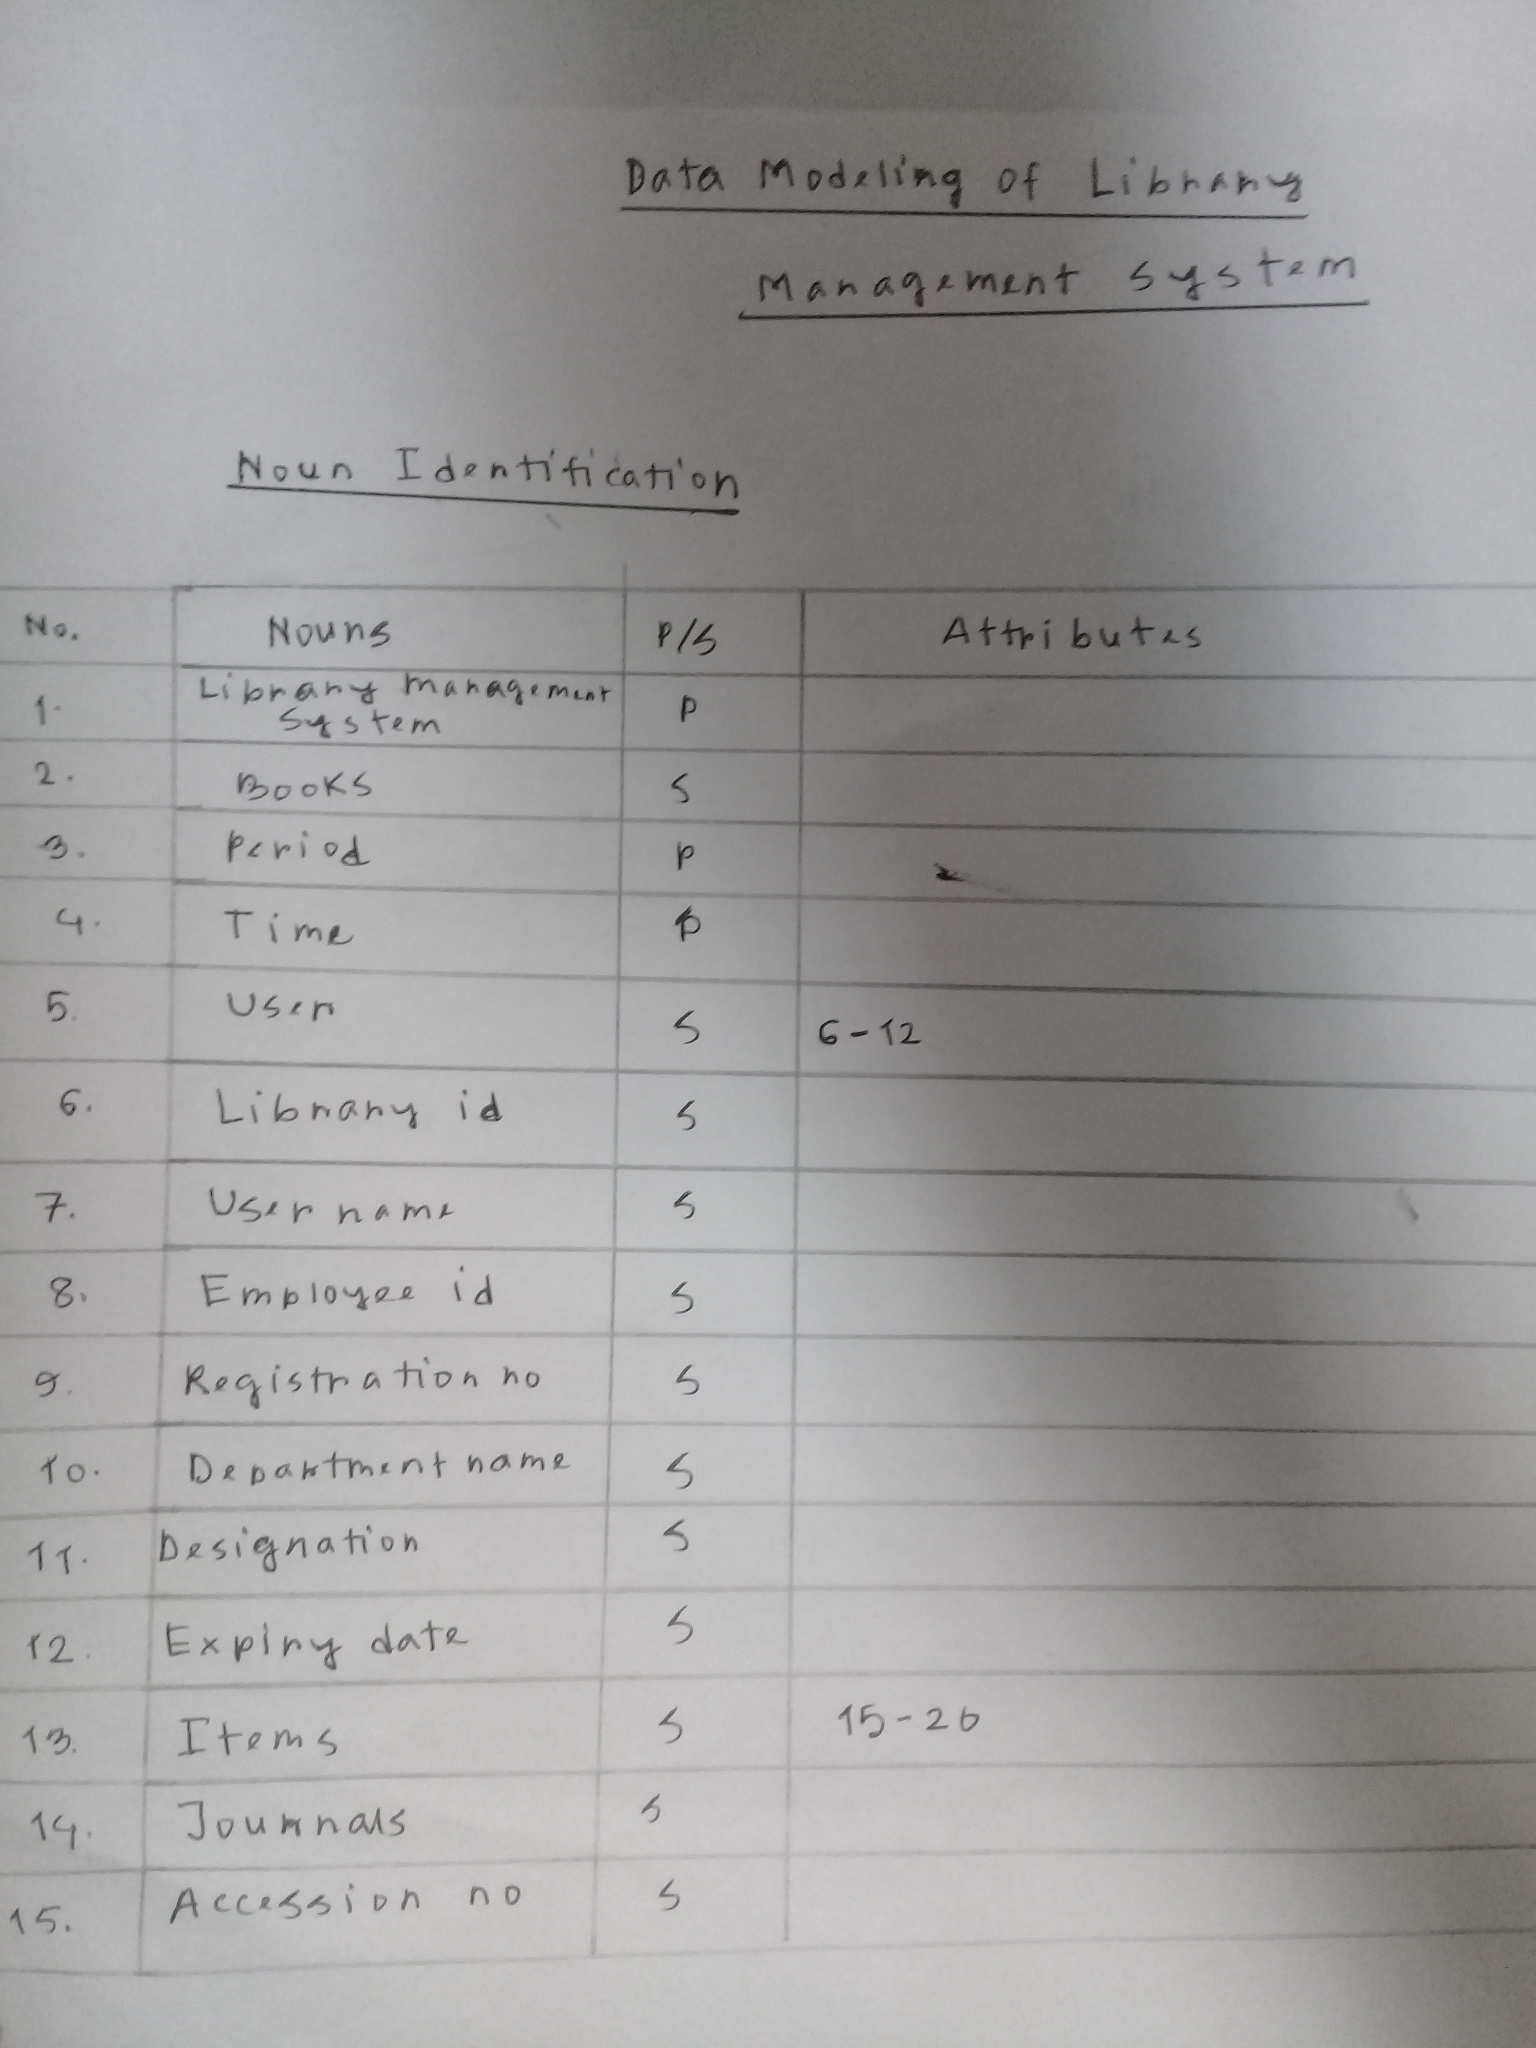 Data Modeling of Library
Management System
Noun Identification
No. Nouns P/S Attributes
1. Library management
System P
2. Books S
3. Period P
4. Time P
5. User S 6-12
6. Library id S
7. User name S
8. Employee id S
9. Registration no S
10. Department name S
11. Designation S
12. Expiry date S
13. Items S 15-26
14. Journals S
15. Accession no S